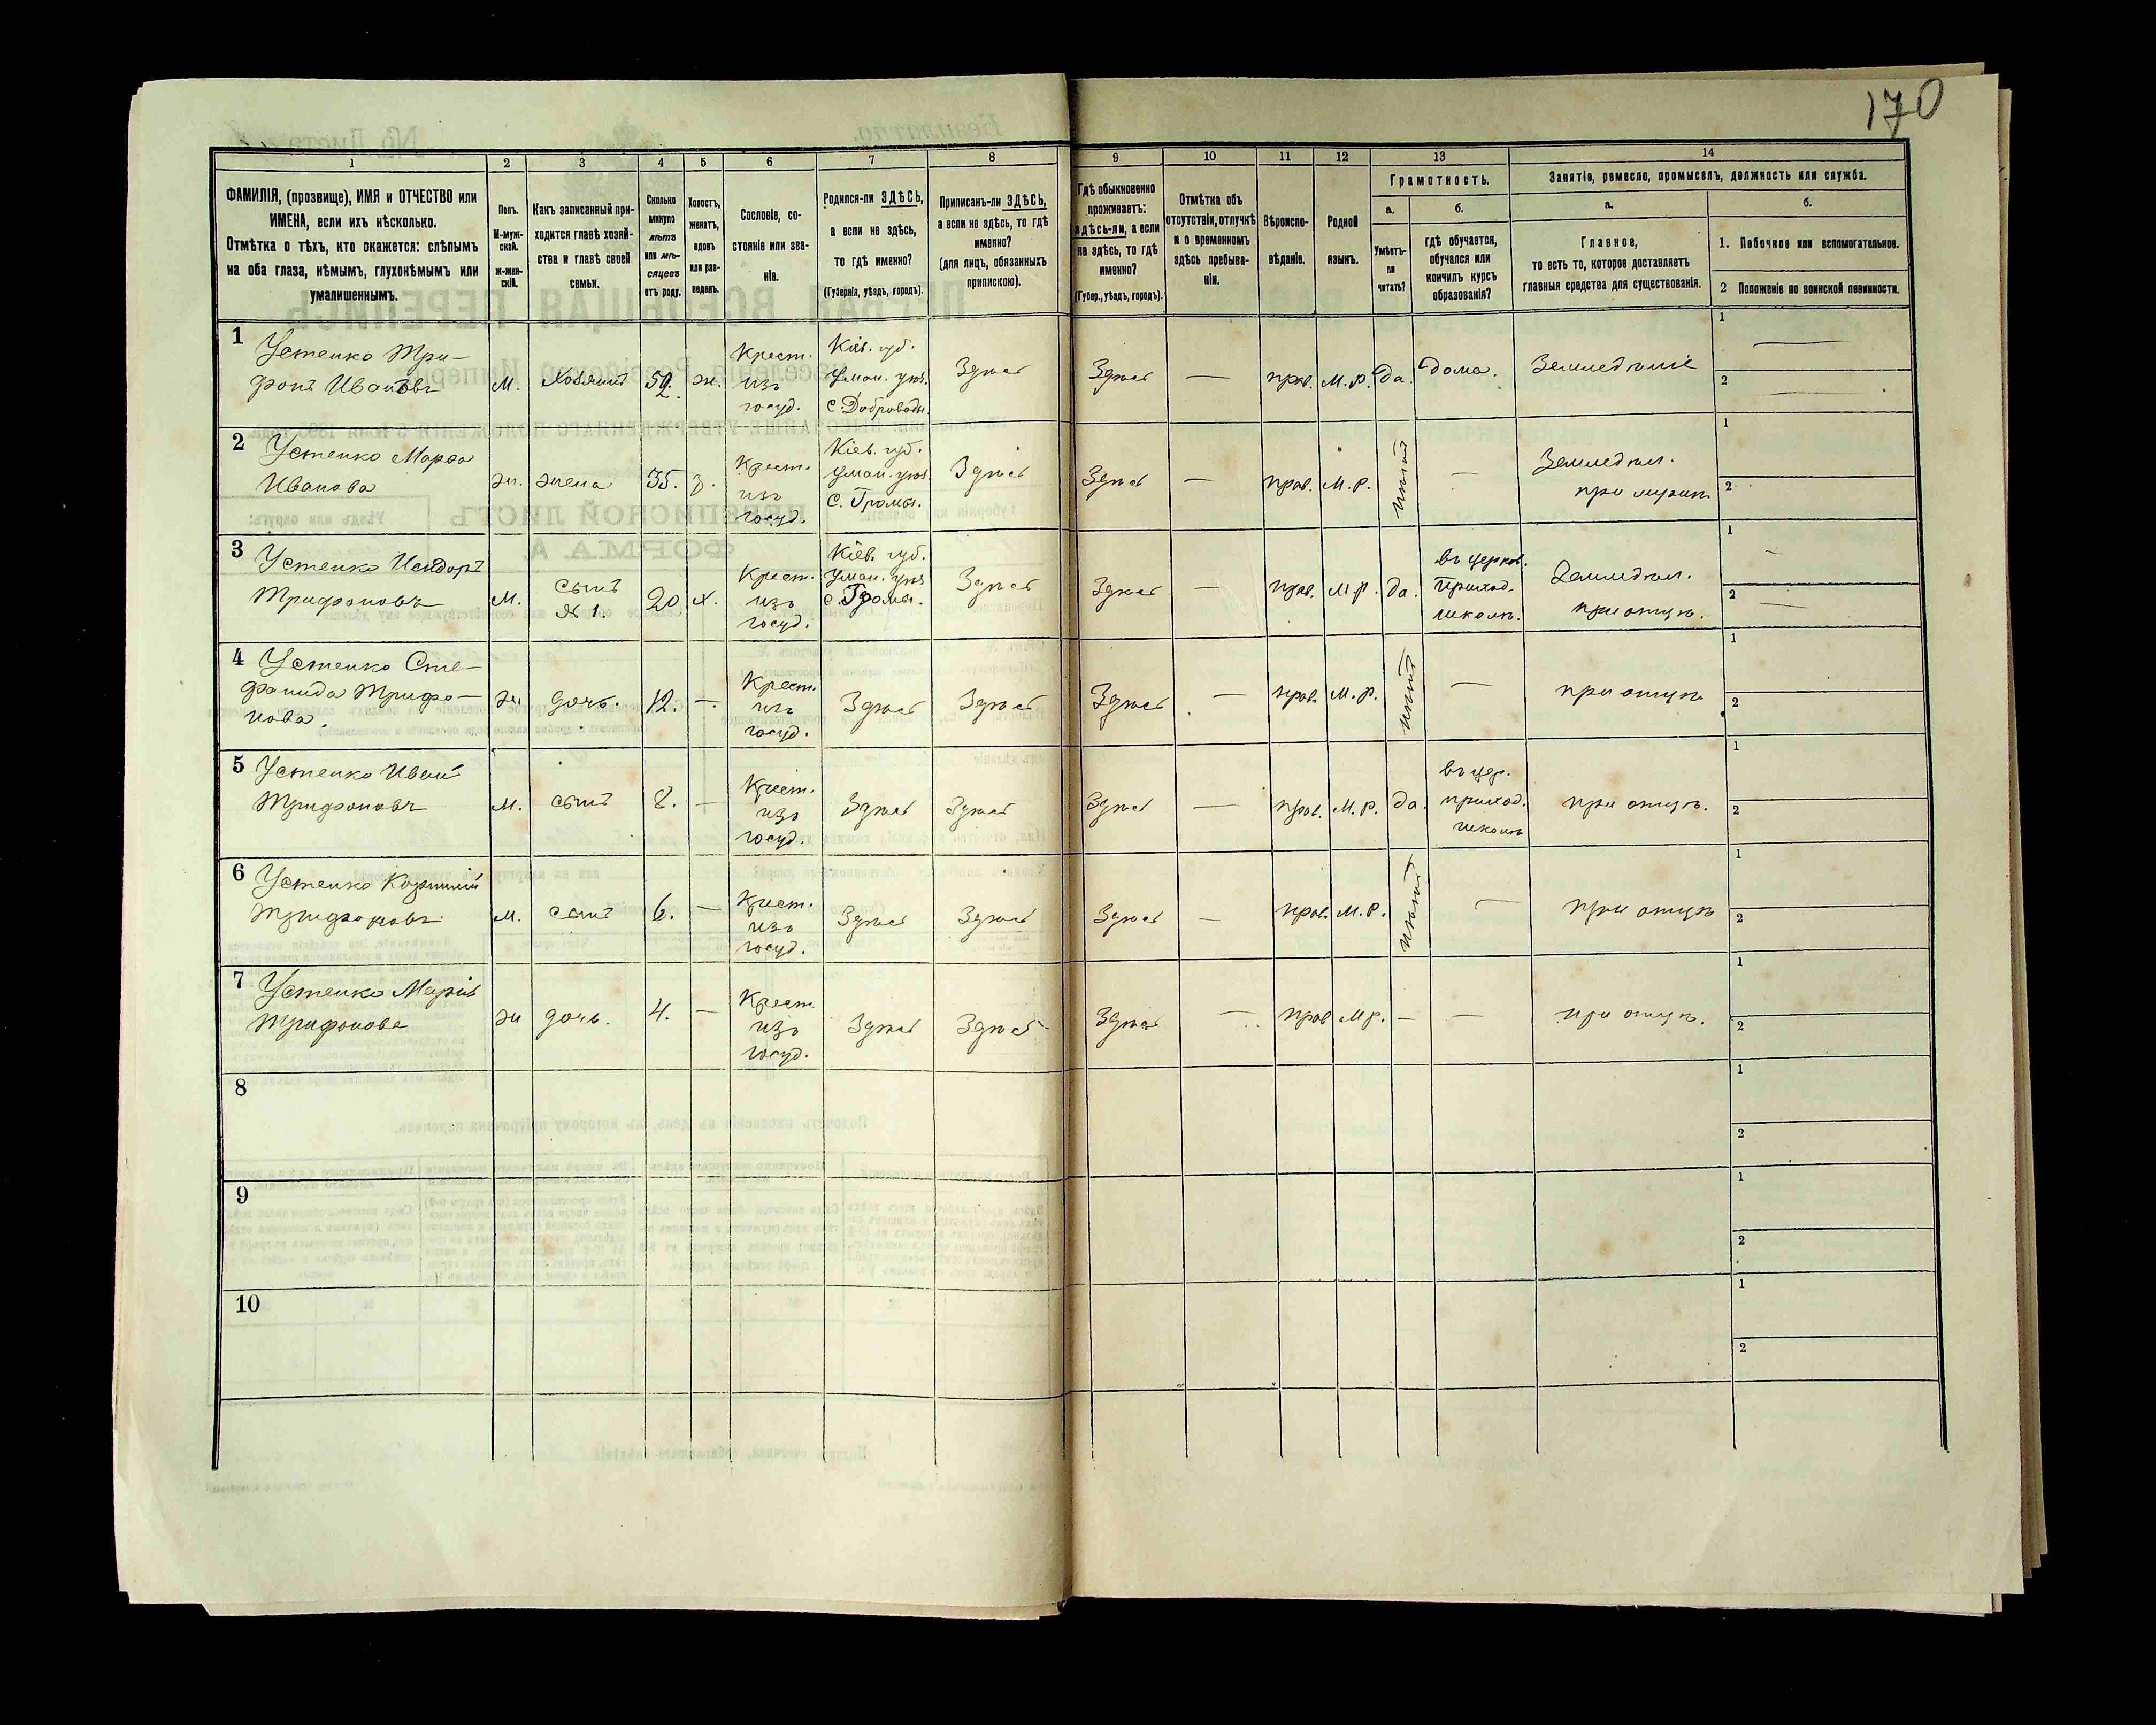 170
1 2 3 4 5 6 7 8 9 10 11 12 13 14
ФАМИЛІЯ, (прозвище), ИМЯ и ОТЧЕСТВО или
ИМЕНА, если ихъ нѣсколько.
Отмѣтка о тѣхъ, кто окажется: слѣпымъ
на оба глаза, нѣмымъ, глухонѣмымъ или
умалишеннымъ.
Полъ.
М-муж-
ской.
Ж-жен-
скій.
Какъ записанный при-
ходится главѣ хозяй-
ства и главѣ своей
семьи.
Сколько
минуло
лѣтъ
или мѣ-
сяцевъ
отъ роду.
Холостъ,
женатъ,
вдовъ
или раз-
веденъ.
Сословіе, со-
стояніе или зва-
ніе.
Родился-ли ЗДѢСЬ,
а если не здѣсь,
то гдѣ именно?
(Губернія, уѣздъ, городъ).
Приписанъ-ли ЗДѢСЬ,
а если не здѣсь, то гдѣ
именно?
(для лицъ, обязанныхъ
припискою).
Гдѣ обыкновенно
проживаетъ:
здѣсь-ли, а если
не здѣсь, то гдѣ
именно?
(Губер., уѣздъ, городъ).
Отмѣтка объ
отсутствіи, отлучкѣ
и о временномъ
здѣсь пребыва-
ніи.
Вѣроиспо-
вѣданіе.
Родной
языкъ.
Грамотность.
а.
Умѣетъ-
ли
читать?
б.
гдѣ обучается,
обучался или
кончилъ курсъ
образованія?
Занятіе, ремесло, промыселъ, должность или служба.
а.
Главное,
то есть то, которое доставляетъ
главныя средства для существованія.
б.
1. Побочное или вспомогательное.
2 Положеніе по воинской повинности.
1
Устенко Три-
фонъ Ивановъ
М.
Хозяинъ
52.
ж.
Крест.
изъ
госуд.
Кіев. губ.
Уман. уѣз.
с. Доброводы.
Здѣсь
Здѣсь
—
прав.
М.р.
да.
дома.
Земледѣліе
1 —
2 —
2
Устенко Марфа
Иванова
ж.
жена
35.
з.
Крест.
изъ
госуд.
Кіев. губ.
Уман. уѣз
с. Громы.
Здѣсь
Здѣсь
—
прав.
М.р.
нѣтъ
—
Земледѣл.
при мужѣ
1
2
3
Устенко Исидоръ
Трифоновъ
М.
сынъ
№ 1.
20
х.
Крест.
изъ
госуд.
Кіев. губ.
Уман. уѣз
с. Громы.
Здѣсь
Здѣсь
—
прав.
М.р.
да.
въ церков.
приход.
школѣ.
Земледѣл.
при отцѣ.
1 —
2 —
4
Устенко Сте-
фанида Трифо-
нова.
ж
дочь.
12.
—
Крест.
изъ
госуд.
Здѣсь
Здѣсь
Здѣсь
—
прав.
М.р.
нѣтъ
—
при отцѣ
1
2
5
Устенко Иванъ
Трифоновъ
М.
сынъ
8.
—
Крест.
изъ
госуд.
Здѣсь
Здѣсь
Здѣсь
—
прав.
М.р.
да.
въ цер.
приход.
школѣ
при отцѣ.
1
2
6
Устенко
Трифоновъ
М.
сынъ
6.
—
Крест.
изъ
госуд.
Здѣсь
Здѣсь
Здѣсь
—
прав.
М.р.
нѣтъ
—
при отцѣ
1
2
7
Устенко Марія
Трифонова
ж
дочь.
4.
—
Крест.
изъ
госуд.
Здѣсь
Здѣсь
Здѣсь
—
прав
Мр.
—
—
при отцѣ.
1
2
8
1
2
9
1
2
10
1
2